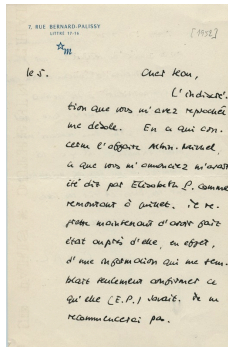 7, RUE BERNARD-PALISSY
LITTRÉ 17-16
☆m
[1958]
le 5.
Cher Jean,
L'indiscré-
tion que vous m'avez reprochée
me désole. En ce qui con-
cerne l'affaire Albin-Michel,
ce que vous m'annonciez m'avait
été dit par Elisabeth P. comme
remontant à juillet. Je re-
grette maintenant d'avoir fait
état auprès d'elle, en effet,
d'une information qui me sem-
blait seulement confirmer ce
qu'elle (E.P.) savait. Je ne
recommencerai pas.